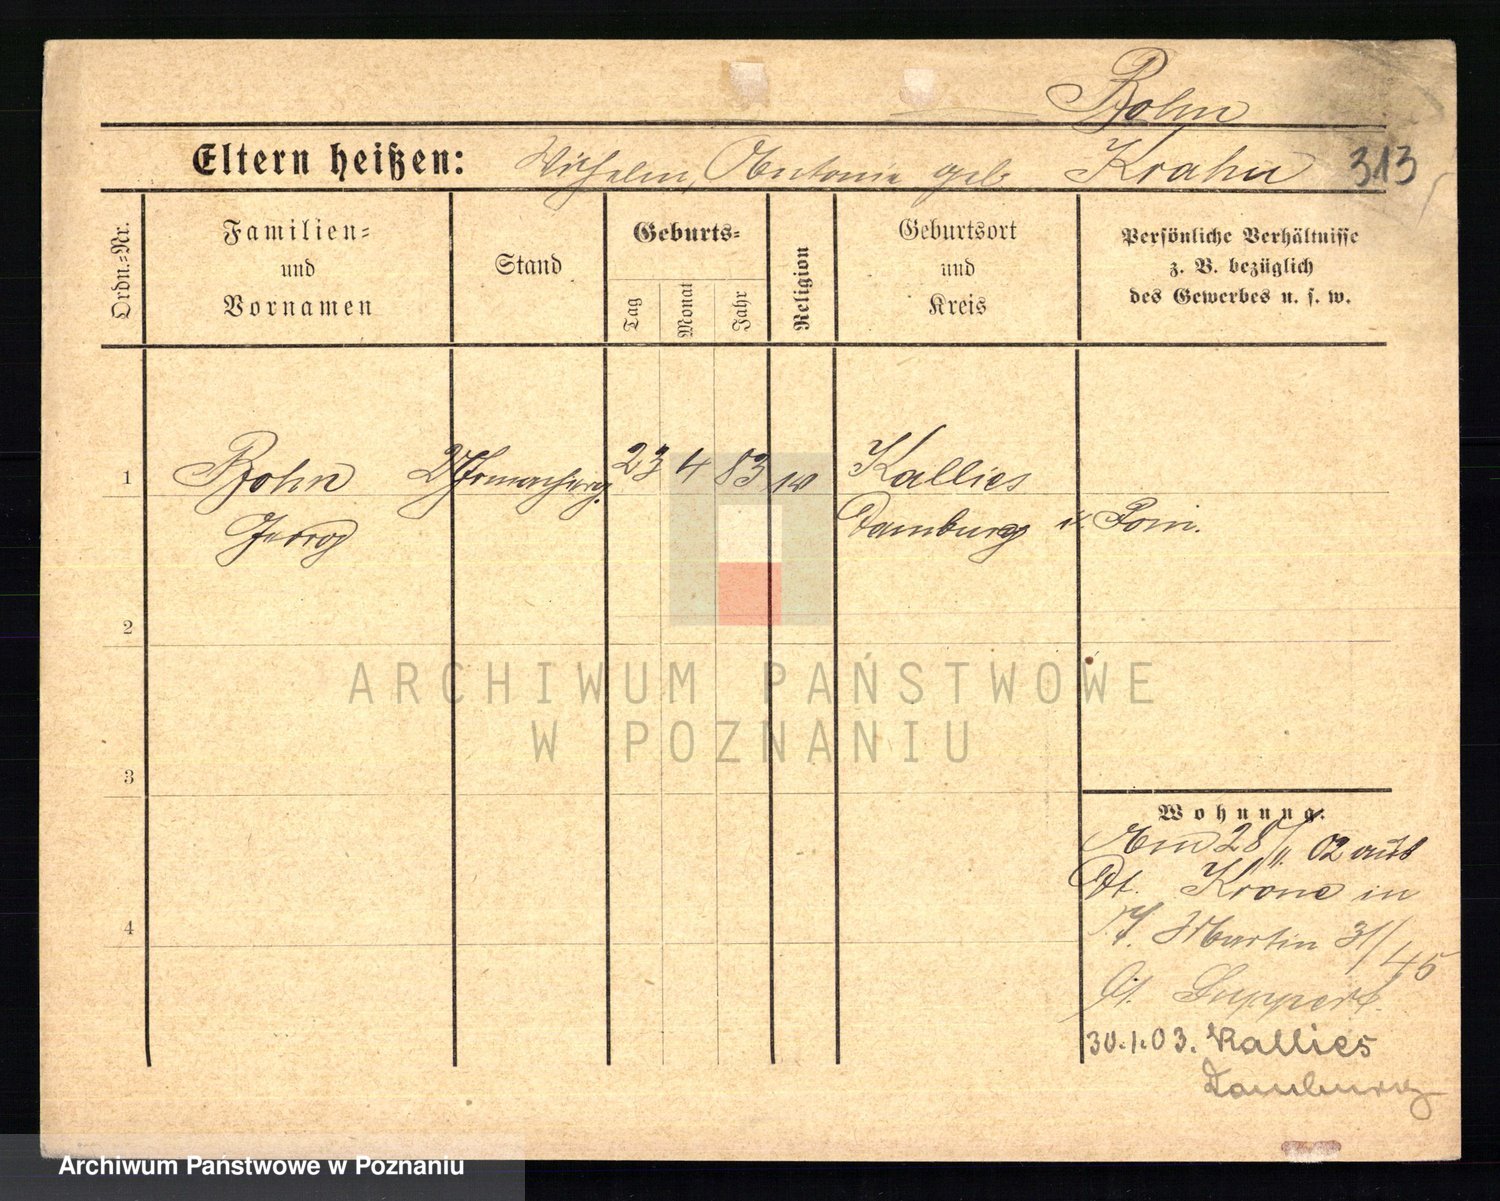 Bohn
Eltern heißen: Wilhelm, Antonie geb Krahn 313
Ordn.-Nr.
Familien- und Vornamen
Stand
Geburts-
Tag Monat Jahr
Religion
Geburtsort und Kreis
Persönliche Verhältnisse
z. B. bezüglich
des Gewerbes u. s. w.
1 Bohn Uhrmacherg. 23 4 83 Kallies
Georg Dramburg i. Pom.
2
3
4
Wohnung.
Am 28/11. 02 aus
Dt. Krone in
St. Martin 31/45
30.1.03. Kallies
Dramburg
ARCHIWUM PAŃSTWOWE
W POZNANIU
Archiwum Państwowe w Poznaniu